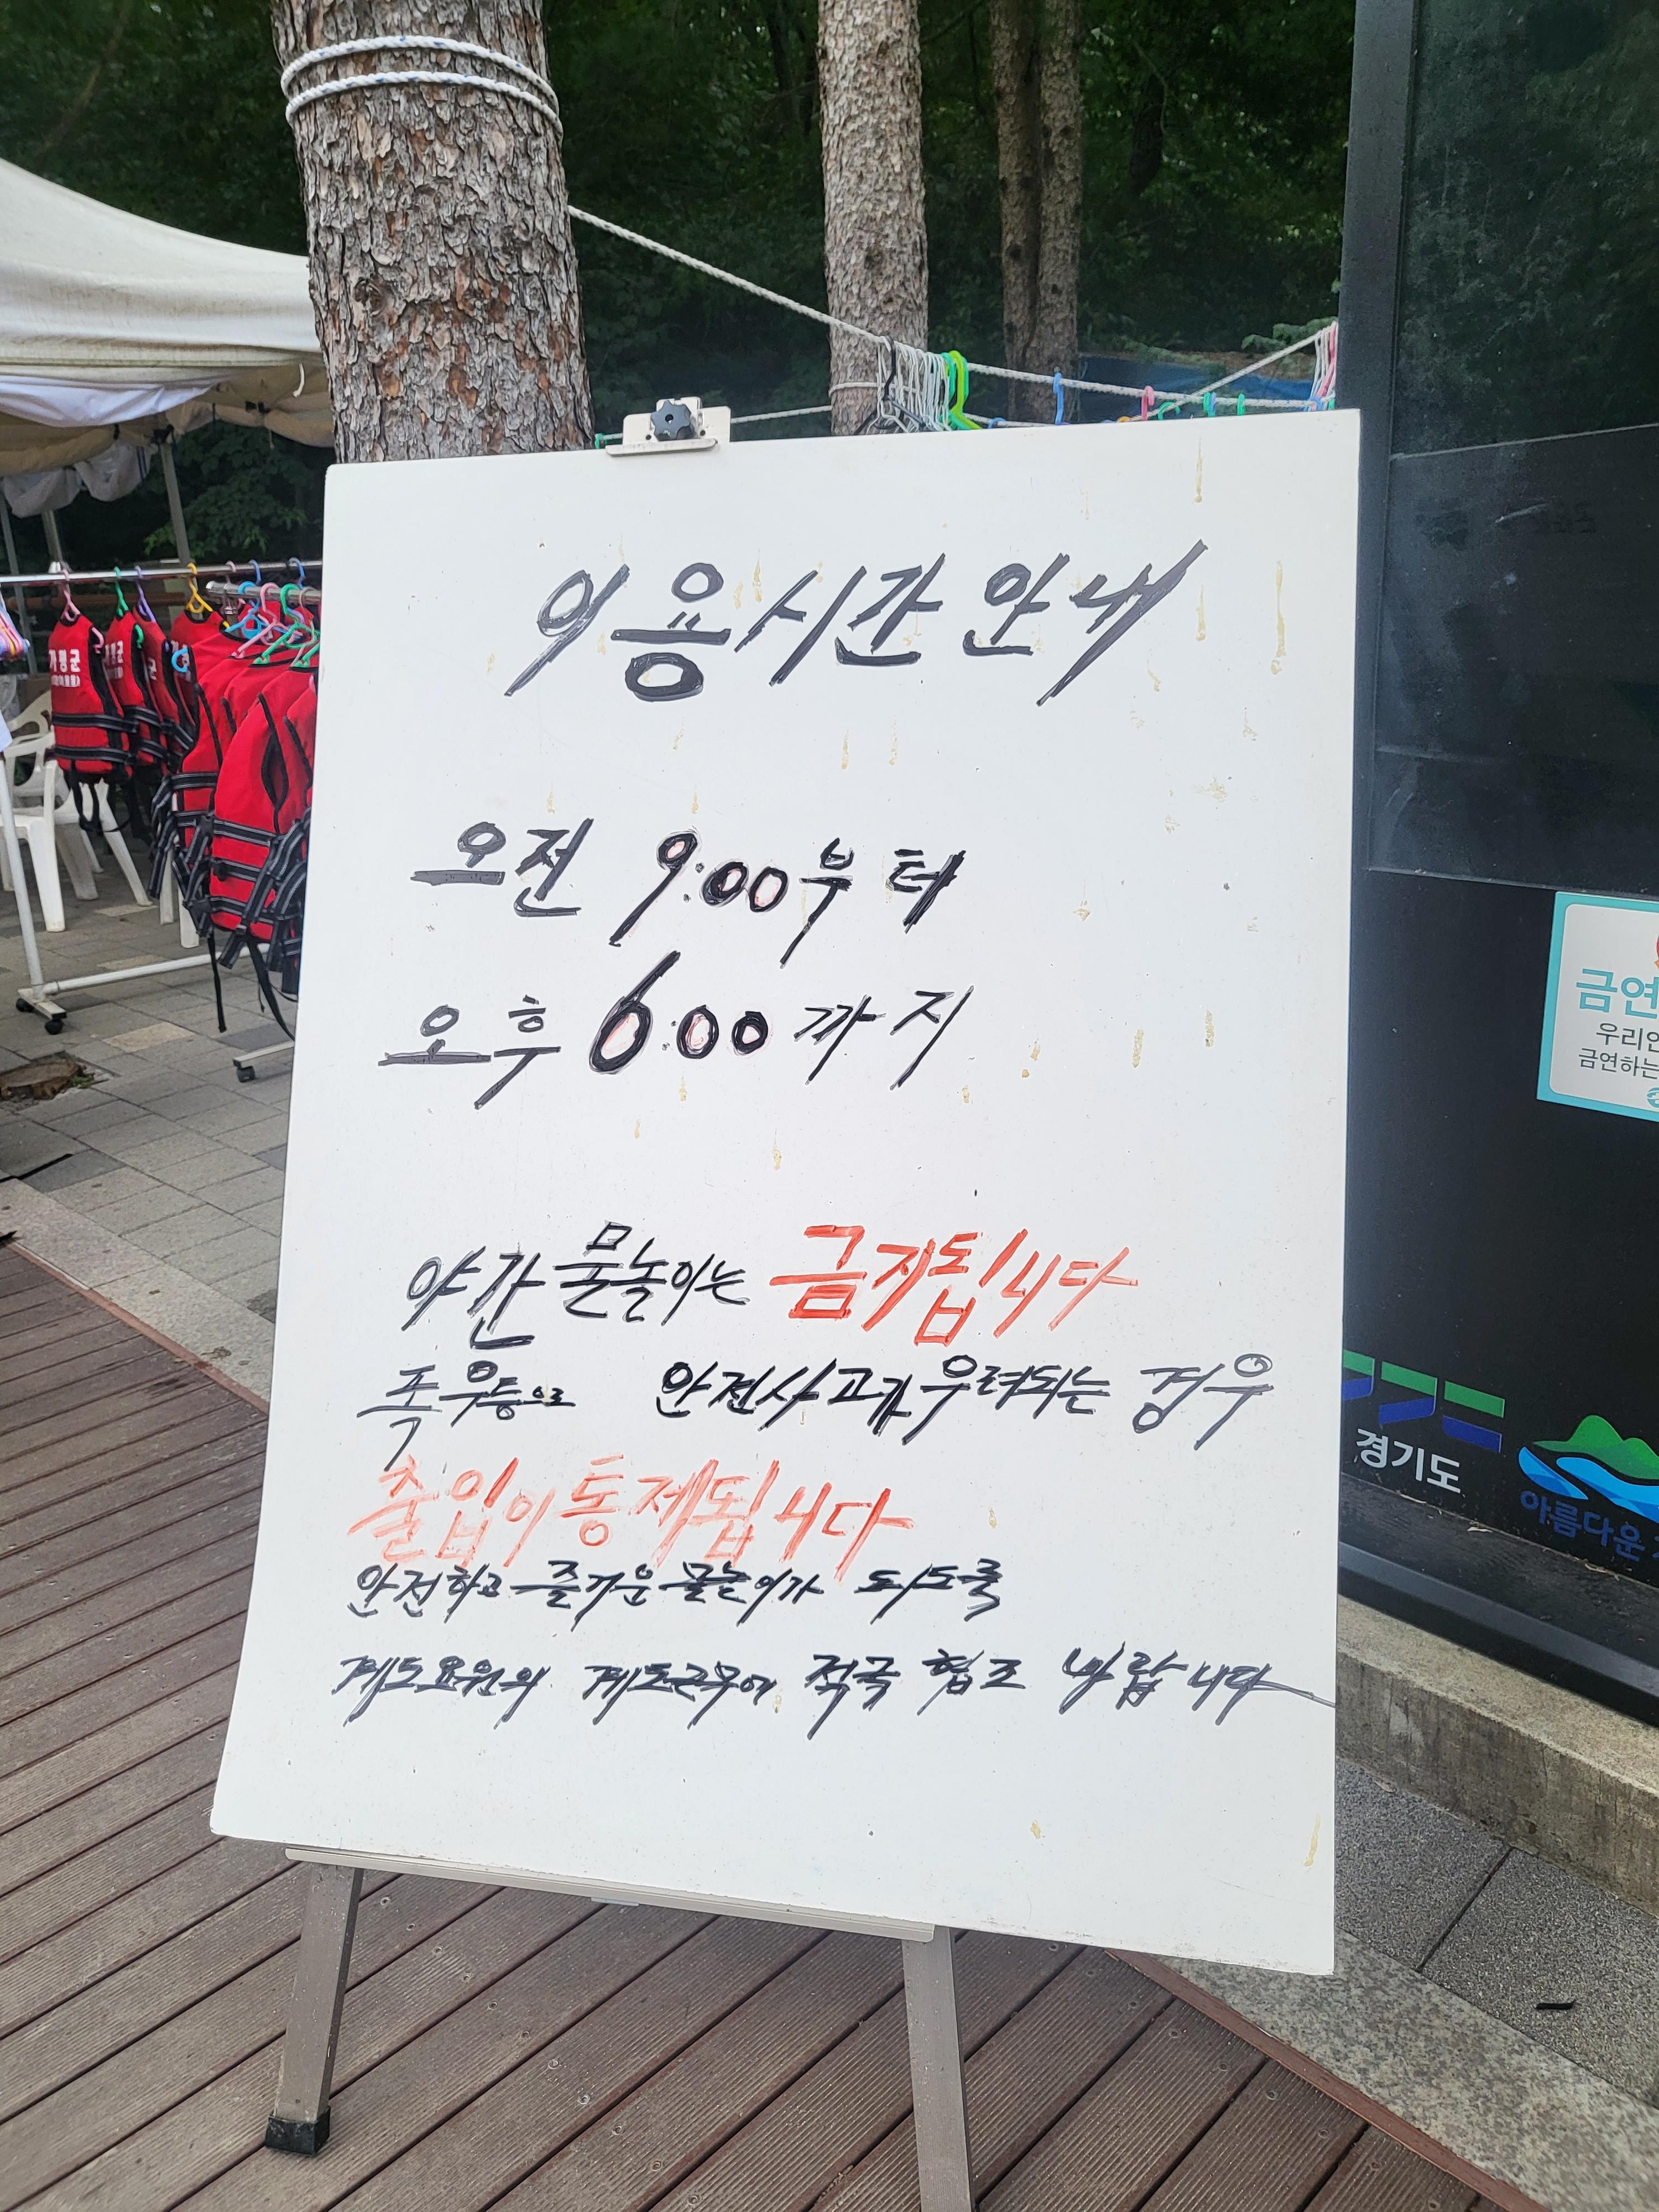 이용시간안내
오전 9:00부터
오후 6:00까지
야간 물놀이는 금지됩니다
폭우등으로 안전사고가 우려되는 경우
출입이 통제됩니다
안전하고 즐거운 물놀이가 되도록
계도요원의 계도근무에 적극 협조 바랍니다
가평군
금연
우리
금연하는
경기도
아름다운